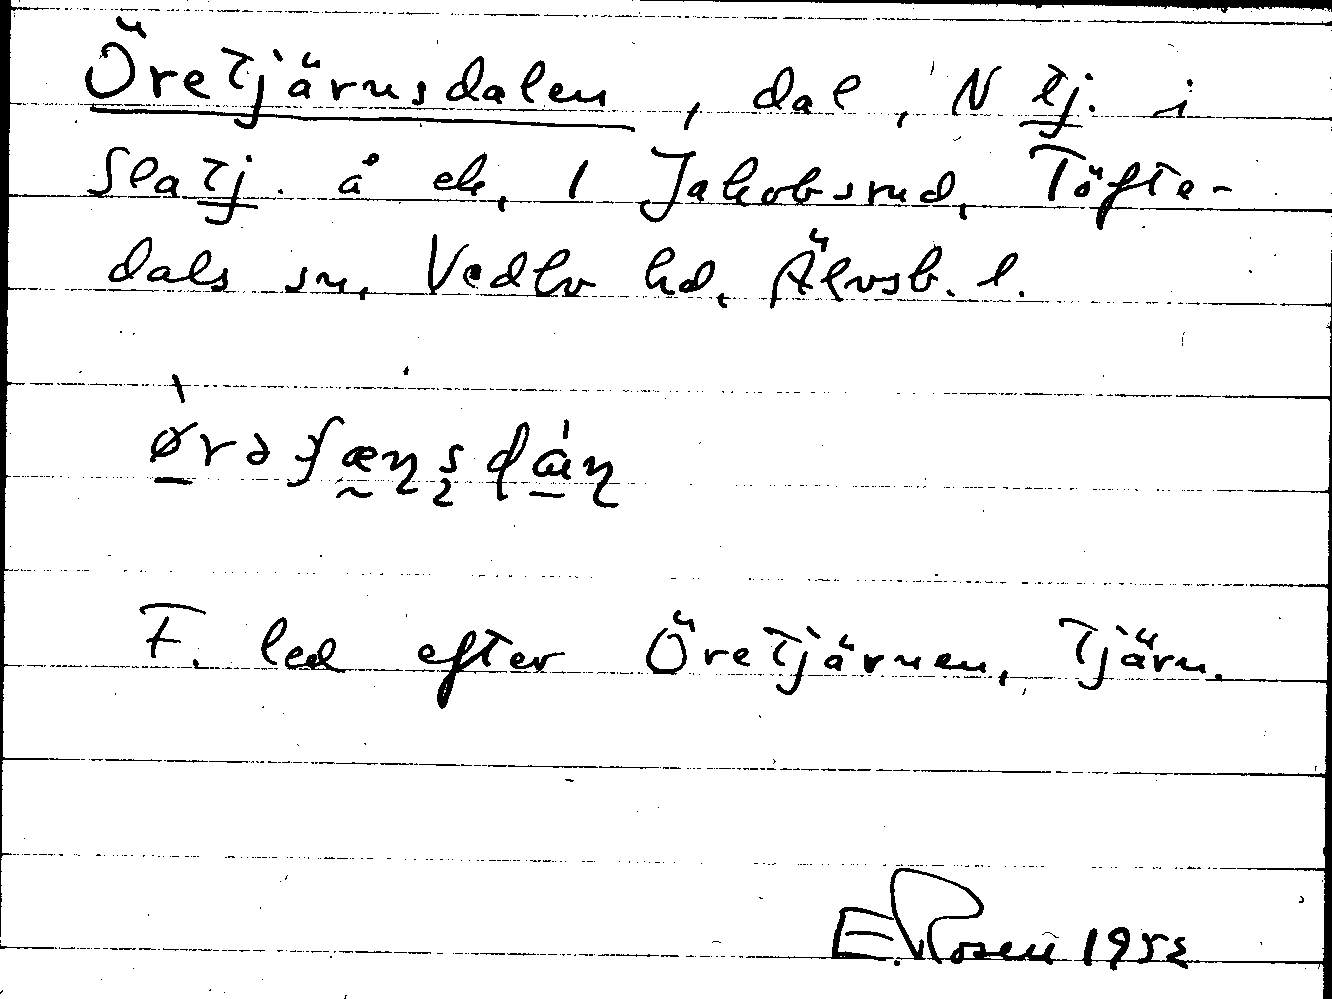 Öretjärnsdalen, dal, N tj. i
Slatj. å ek, 1 Jakobsrud, Töfte-
dals sn, Vedbo hd, Älvsb. l.
F. led efter Öretjärnen, tjärn.
E. Rosen 1952